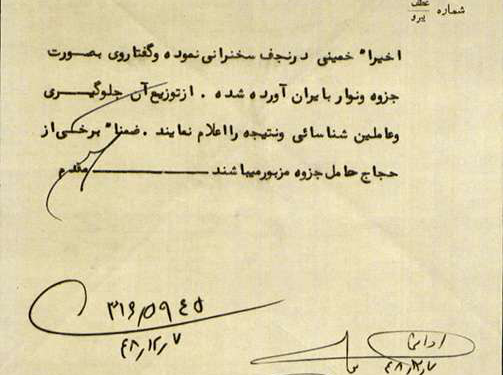 شماره
عطف
پیرو
اخیرا" خمینی در نجف سخنرانی نموده وگفتار وی بصورت
جزوه ونوار بایران آورده شده . از توزیع آن جلوگیری
وعاملین شناسائی ونتیجه را اعلام نمایند . ضمنا" برخی از
حجاج حامل جزوه مزبور میباشند ـــــــــــ مقدم
۳۱۶/۵۹۴۵
۴۸/۱۲/۷
۴۸/۱۲/۷